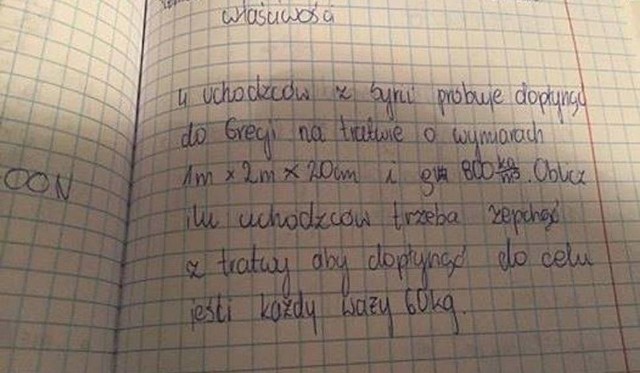 właściwości
4 uchodźców z Syrii próbuje dopłynąć
do Grecji na tratwie o wymiarach
1m x 2m x 20cm i 800 kg/m³. Oblicz
ilu uchodźców trzeba zepchnąć
z tratwy aby dopłynąć do celu
jeśli każdy waży 60kg.
OON